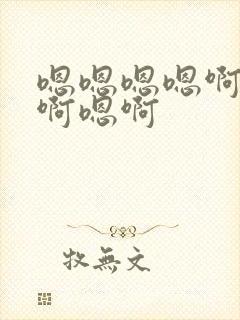 嗯嗯嗯嗯啊
啊嗯啊
牧無文